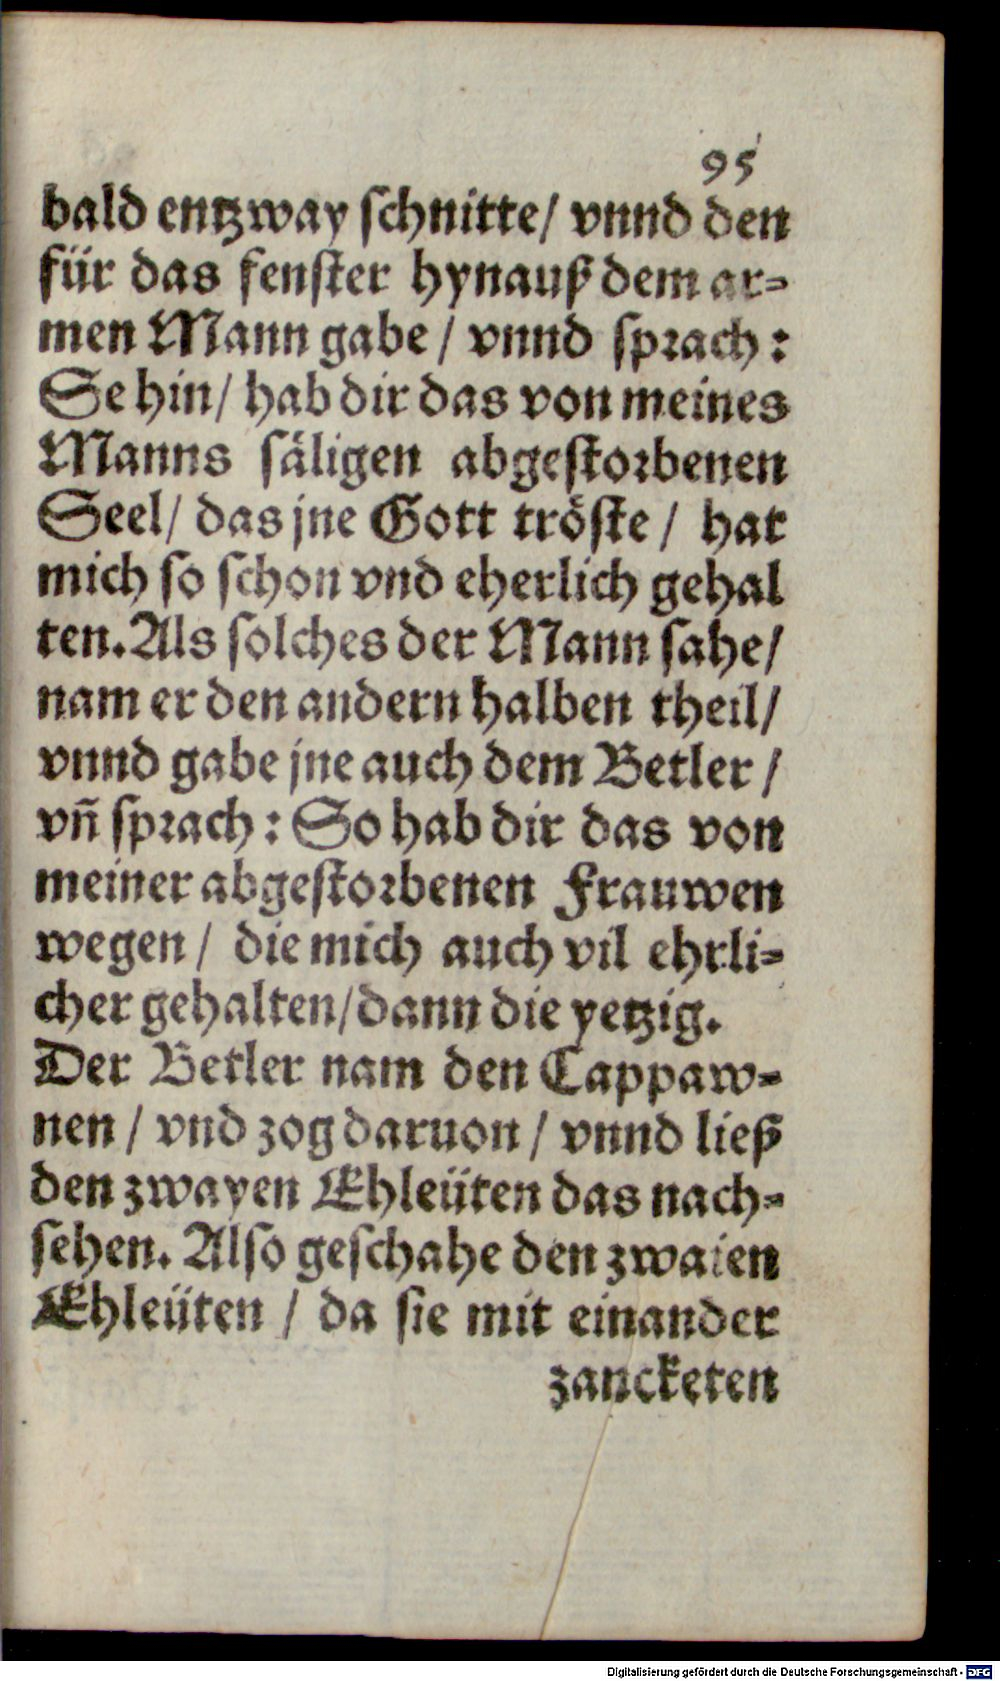 95
bald entzway schnitte/ vnnd den
für das fenster hynauß dem ar-
men Mann gabe / vnnd sprach:
Se hin/ hab dir das von meines
Manns säligen abgestorbenen
Seel/ das jne Gott tröste / hat
mich so schon vnd eherlich gehal
ten. Als solches der Mann sahe/
nam er den andern halben theil/
vnnd gabe jne auch dem Betler /
vn̄ sprach: So hab dir das von
meiner abgestorbenen Frauwen
wegen / die mich auch vil ehrli-
cher gehalten/ dann die yetzig.
Der Betler nam den Cappaw-
nen / vnd zog daruon / vnnd ließ
den zwayen Ehleüten das nach-
sehen. Also geschahe den zwaien
Ehleüten / da sie mit einander
zancketen
Digitalisierung gefördert durch die Deutsche Forschungsgemeinschaft - DFG